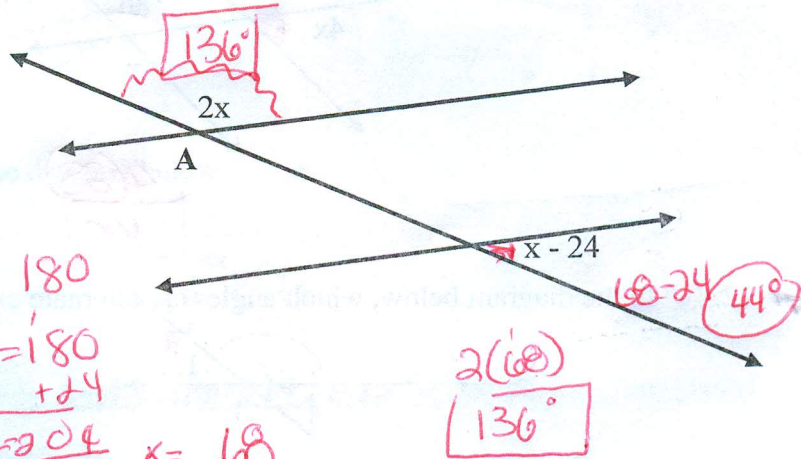 136°
2x
A
x - 24
68-24 44°
180
=180
+24
=204
x= 68
2(68)
136°